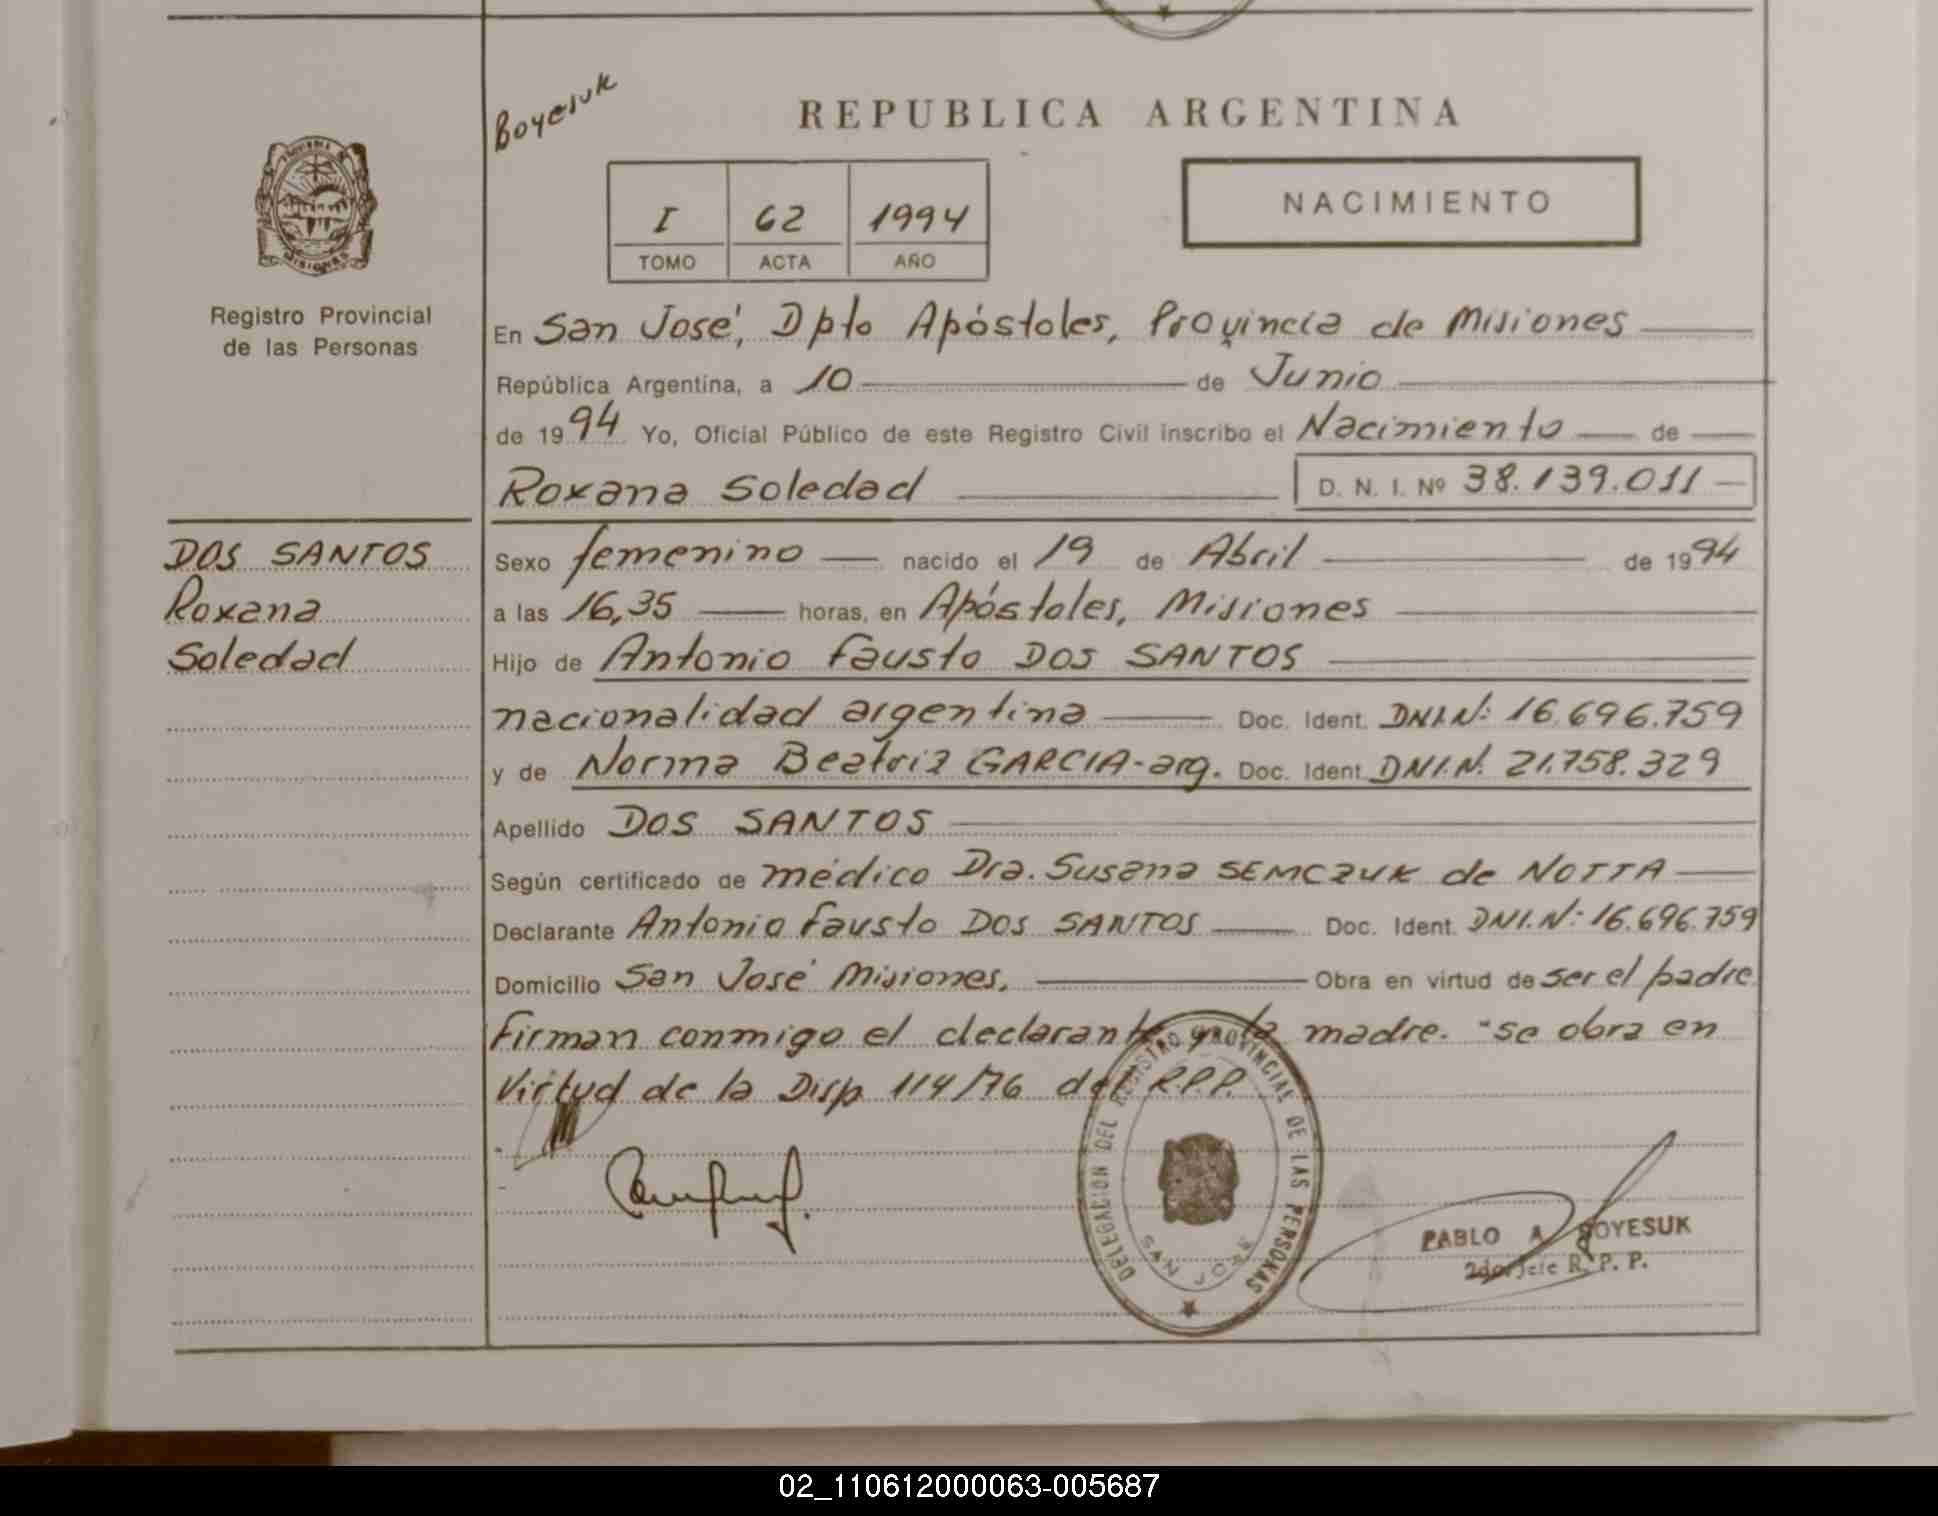 Boyesuk
REPUBLICA ARGENTINA
I 62 1994
TOMO ACTA AÑO
NACIMIENTO
PROVINCIA DE
MISIONES
Registro Provincial
de las Personas
DOS SANTOS
Roxana
Soledad
En San José, Dpto Apóstoles, Provincia de Misiones
República Argentina, a 10 de Junio
de 1994 Yo, Oficial Público de este Registro Civil inscribo el Nacimiento de
Roxana Soledad D. N. I. Nº 38.139.011
Sexo femenino nacido el 19 de Abril de 1994
a las 16,35 horas, en Apóstoles, Misiones
Hijo de Antonio Fausto DOS SANTOS
nacionalidad argentina Doc. Ident. DNI.Nº: 16.696.759
y de Norma Beatriz GARCIA-arg. Doc. Ident. DNI.N. 21.758.329
Apellido DOS SANTOS
Según certificado de médico Dra. Susana SEMCZUK de NOTTA
Declarante Antonio Fausto DOS SANTOS Doc. Ident. DNI.N: 16.696.759
Domicilio San José Misiones, Obra en virtud de ser el padre
Firman conmigo el declarante y la madre. "se obra en
virtud de la Disp 114/76 del R.P.P.
DELEGACION DEL REGISTRO PROVINCIAL DE LAS PERSONAS
SAN JOSE
PABLO A BOYESUK
2do Jefe R. P. P.
02_110612000063-005687